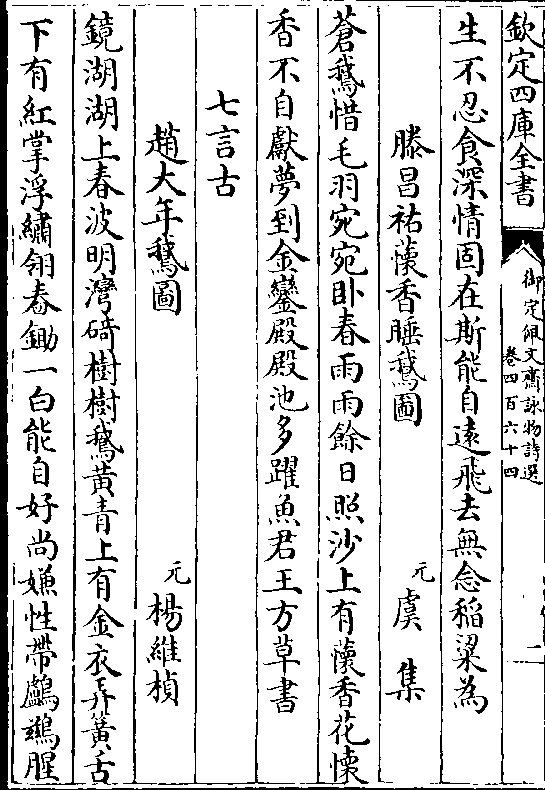 欽定四庫全書
御定佩文齋詠物詩選
卷四百六十四
二
生不忍食深情固在斯能自遠飛去無念稻粱為
滕昌祐蘹香睡鵝圖
元
虞集
蒼鵝惜毛羽宛宛卧春雨雨餘日照沙上有蘹香花懐
香不自獻夢到金鑾殿殿池多躍魚君王方草書
七言古
趙大年鵝圖
元
楊維楨
鏡湖湖上春波明灣碕樹樹鵝黃青上有金衣弄簧舌
下有紅掌浮繡翎舂鋤一白能自好尚嫌性帶鸕鷀腥